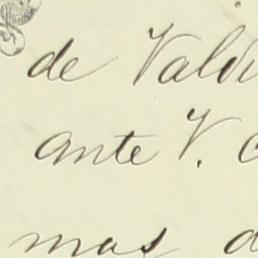 de Valdi
ante V. 
mas d